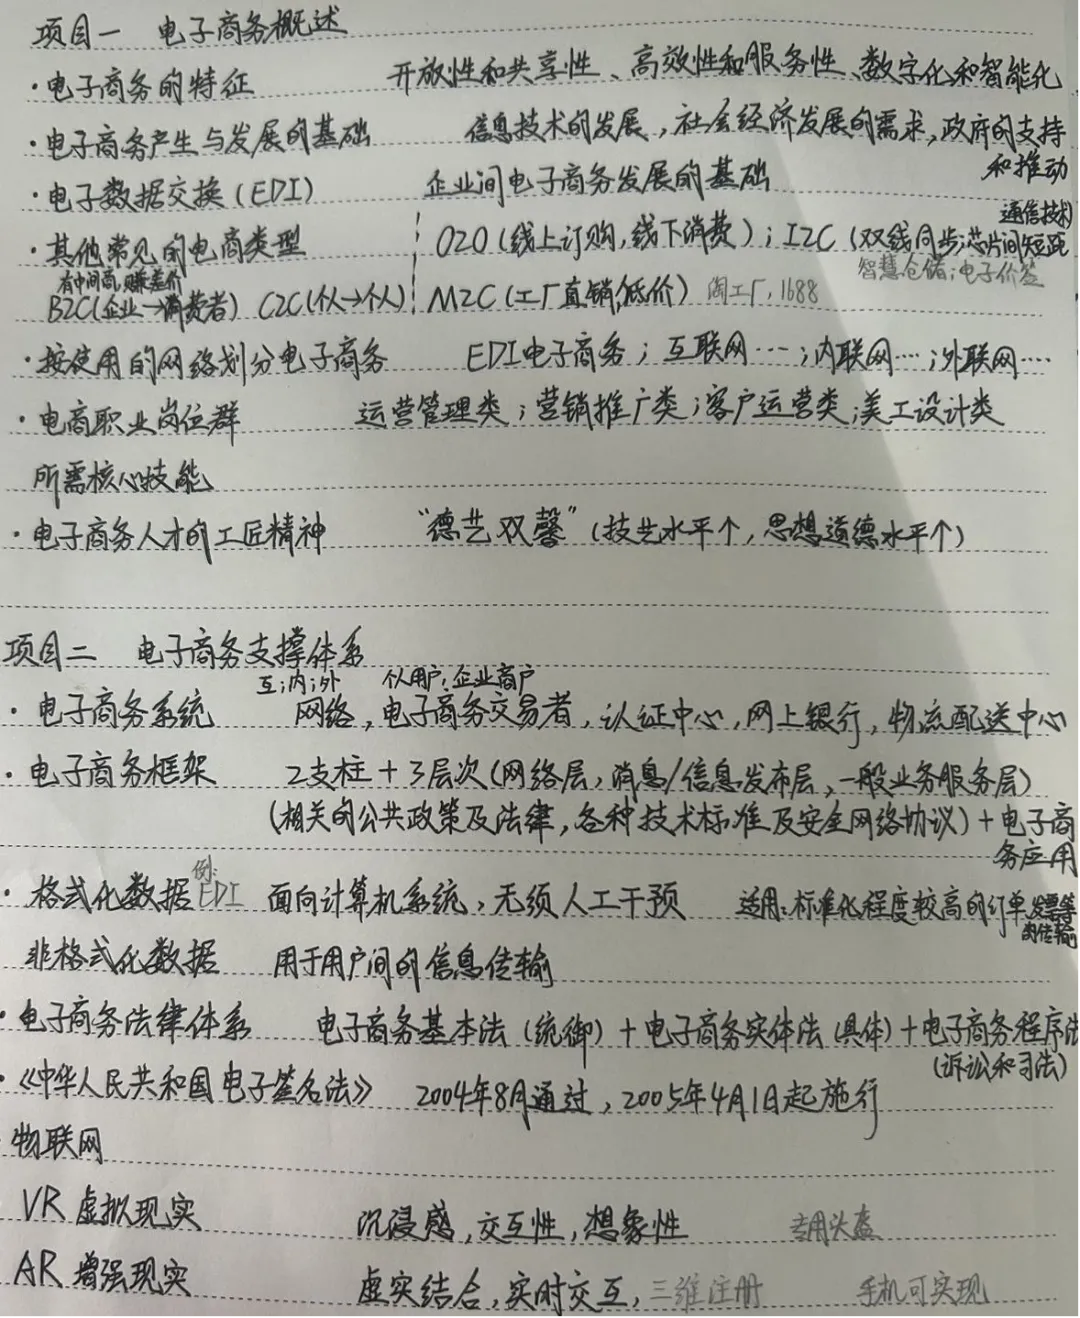 项目一 电子商务概述
·电子商务的特征 开放性和共享性、高效性和服务性、数字化和智能化
·电子商务产生与发展的基础 信息技术的发展,社会经济发展的需求,政府的支持
和推动
·电子数据交换(EDI) 企业间电子商务发展的基础
通信技术
·其他常见的电商类型 O2O(线上订购,线下消费);I2C(双线同步;芯片间短距
智慧仓储;电子价签
有中间商,赚差价
B2C(企业→消费者) C2C(个人→个人) M2C(工厂直销,低价) 淘工厂,1688
·按使用的网络划分电子商务 EDI电子商务;互联网…;内联网…;外联网…
·电商职业岗位群 运营管理类;营销推广类;客户运营类;美工设计类
所需核心技能
·电子商务人才的工匠精神 “德艺双馨”(技艺水平个,思想道德水平个)
项目二 电子商务支撑体系
互;内;外 个人用户;企业商户
·电子商务系统 网络,电子商务交易者,认证中心,网上银行,物流配送中心
·电子商务框架 2支柱+3层次(网络层,消息/信息发布层,一般业务服务层)
(相关的公共政策及法律,各种技术标准及安全网络协议)+电子商
务应用
例:
·格式化数据 EDI 面向计算机系统,无须人工干预 适用:标准化程度较高的订单发票等
的传输
非格式化数据 用于用户间的信息传输
·电子商务法律体系 电子商务基本法(统御)+电子商务实体法(具体)+电子商务程序法
(诉讼和司法)
·《中华人民共和国电子签名法》 2004年8月通过,2005年4月1日起施行
物联网
VR 虚拟现实 沉浸感,交互性,想象性 专用头盔
AR 增强现实 虚实结合,实时交互,三维注册 手机可实现